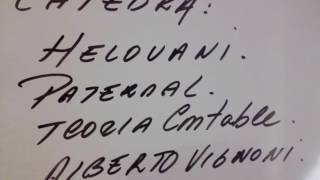 CATEDRA:
HELOUANI.
PATERNAL.
TEORIA Contable.
ALBERTO VIGNONI.